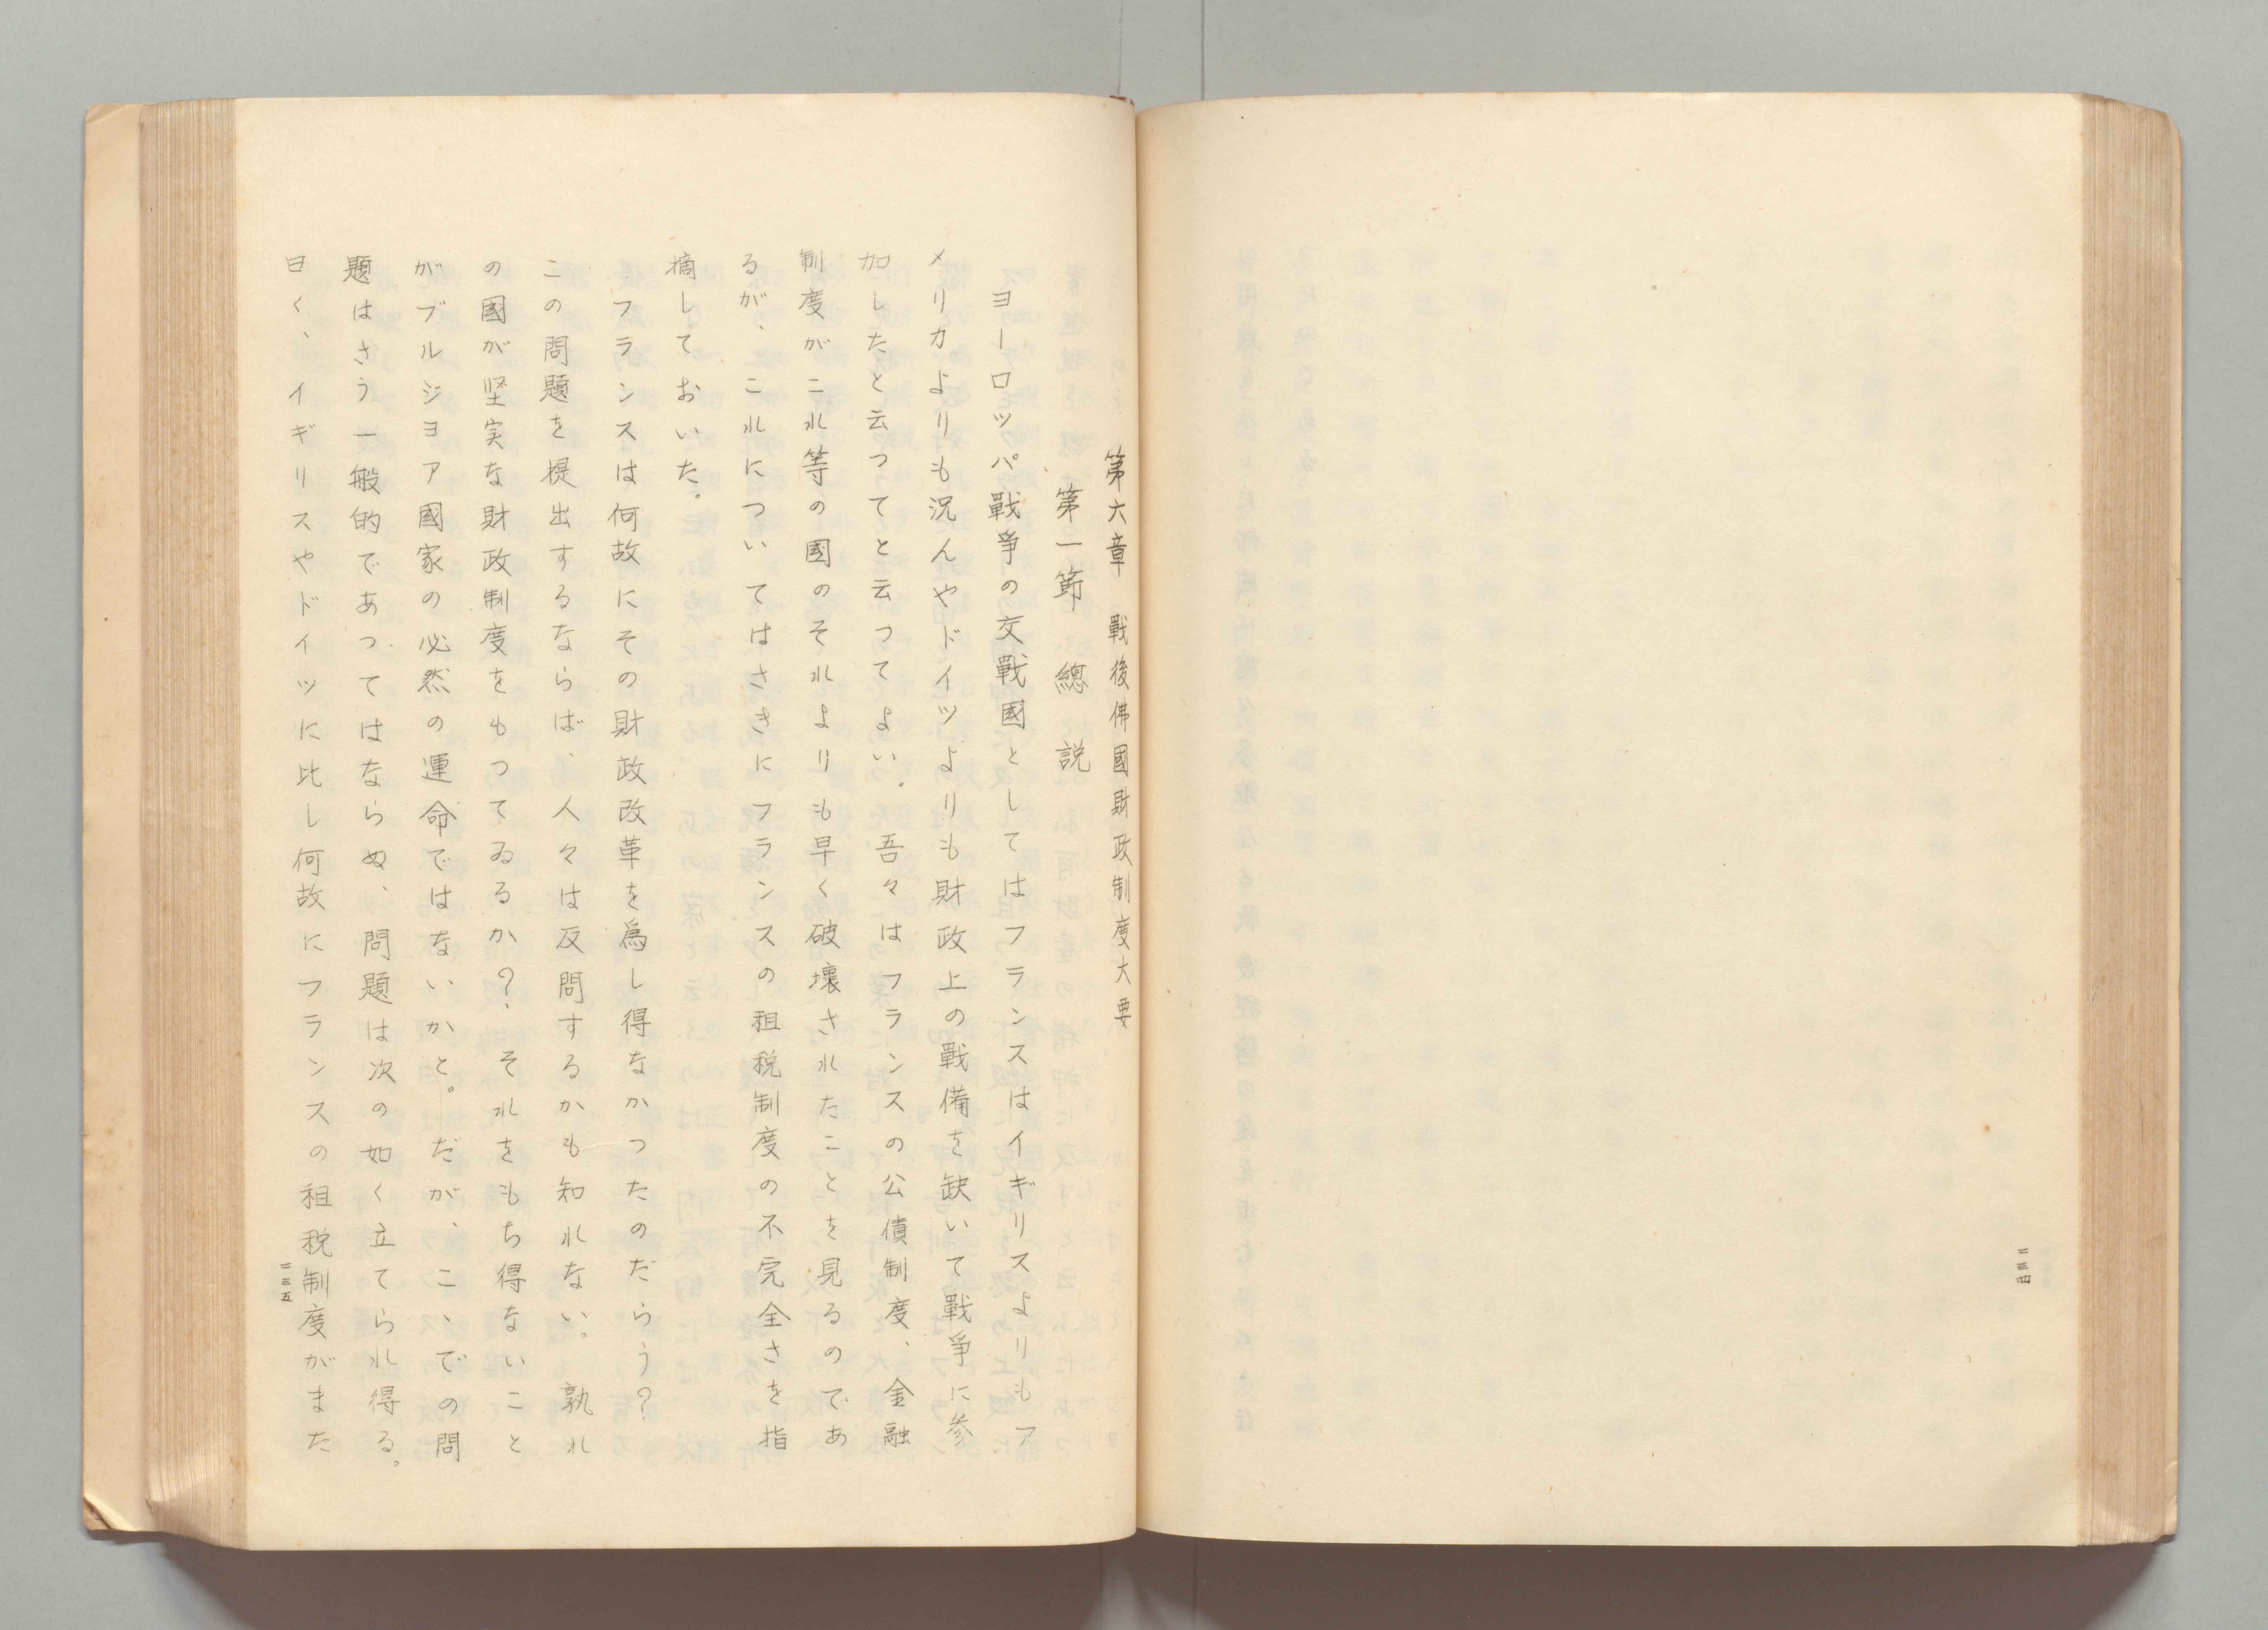 二三四
第六章　戰後佛國財政制度大要
第一節　總説
ヨーロツパ戰爭の交戰國としてはフランスはイギリスよりもア
メリカよりも況んやドイツよりも財政上の戰備を缺いて戰爭に参
加したと云つてと云つてよい。吾々はフランスの公債制度、金融
制度がこれ等の國のそれよりも早く破壞されたことを見るのであ
るが、これについてはさきにフランスの租税制度の不完全さを指
摘しておいた。
フランスは何故にその財政改革を爲し得なかつたのだらう？
この問題を提出するならば、人々は反問するかも知れない。孰れ
の國が堅実な財政制度をもつてゐるか？、それをもち得ないこと
がブルジヨア國家の必然の運命ではないかと。だが、こゝでの問
題はさう一般的であつてはならぬ、問題は次の如く立てられ得る。
曰く、イギリスやドイツに比し何故にフランスの租税制度がまた
二三五